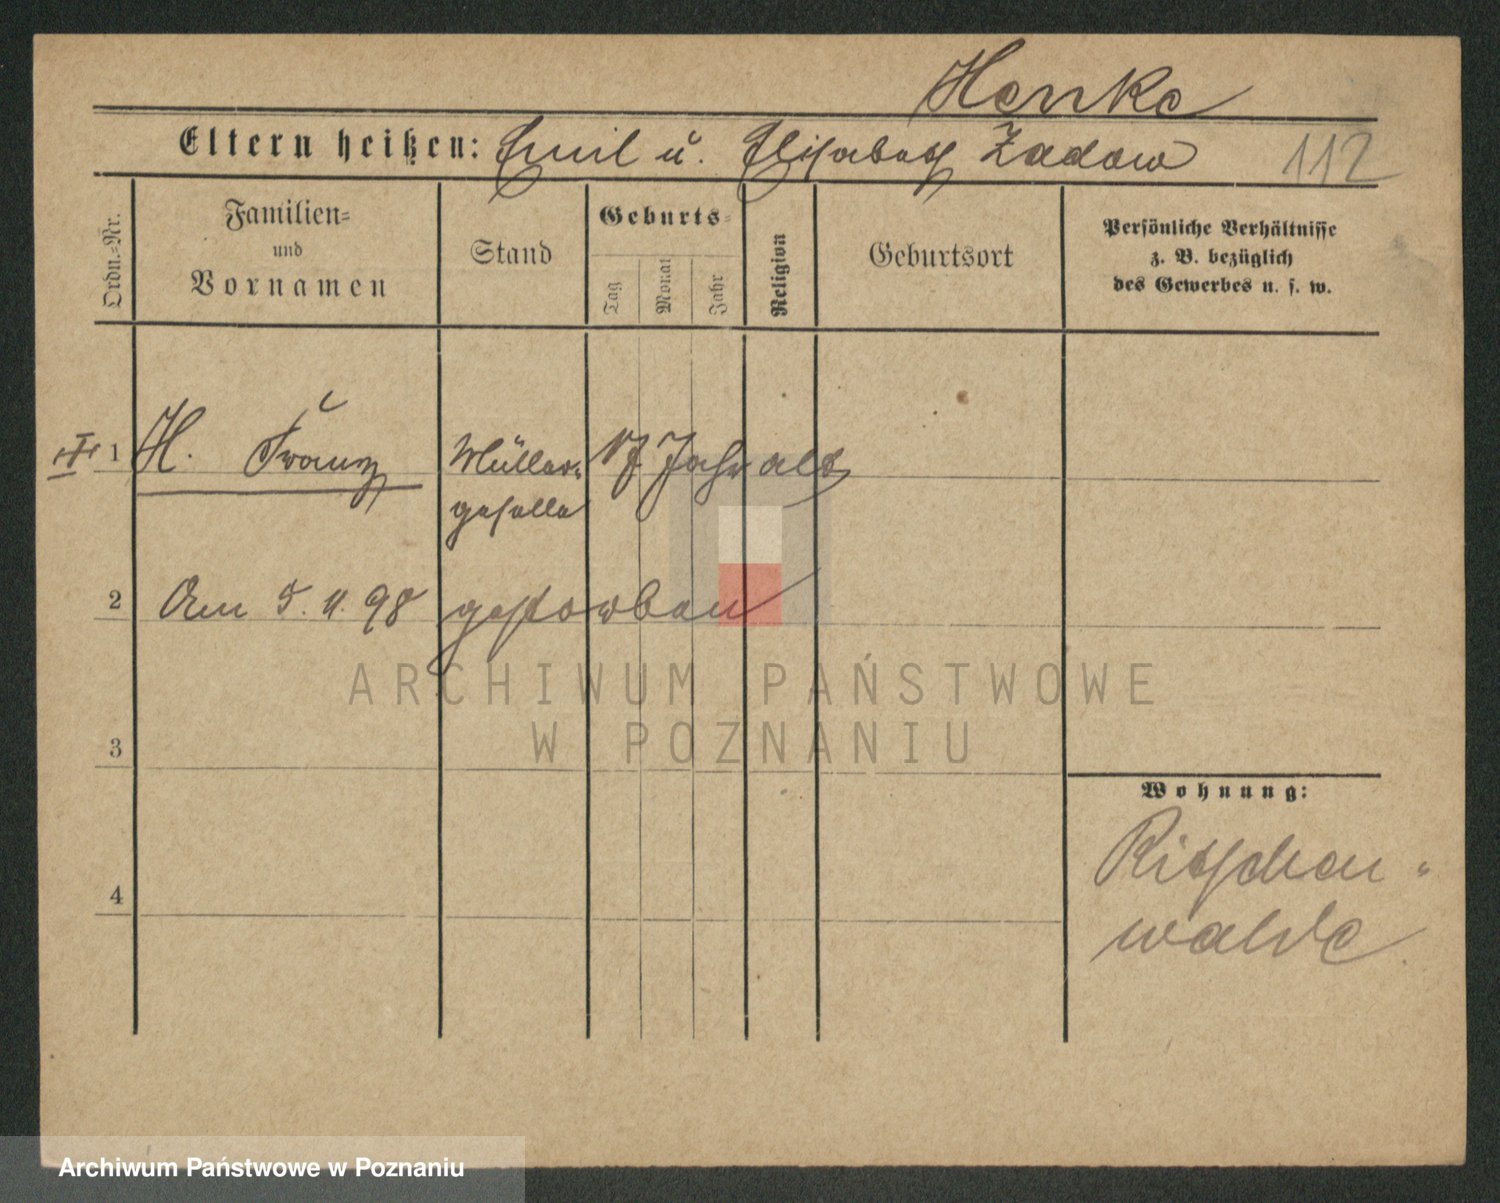 Henke
Eltern heißen: Emil u. Elisabeth Zadow 112
Ordn.-Nr.
Familien-
und
Vornamen
Stand
Geburts-
Tag
Monat
Jahr
Religion
Geburtsort
Persönliche Verhältnisse
z. B. bezüglich
des Gewerbes u. s. w.
1 H. Franz Müller- Jahr alt
geselle
2 Am 5. 11. 98 gestorben
ARCHIWUM PAŃSTWOWE
W POZNANIU
3
Wohnung:
Ritschen-
walde
4
Archiwum Państwowe w Poznaniu